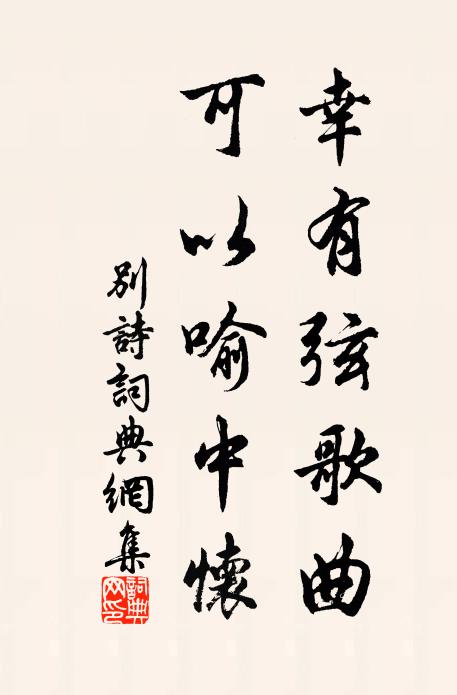 幸有弦歌曲
可以喻中懷
別詩詞典網集
詞典
网印